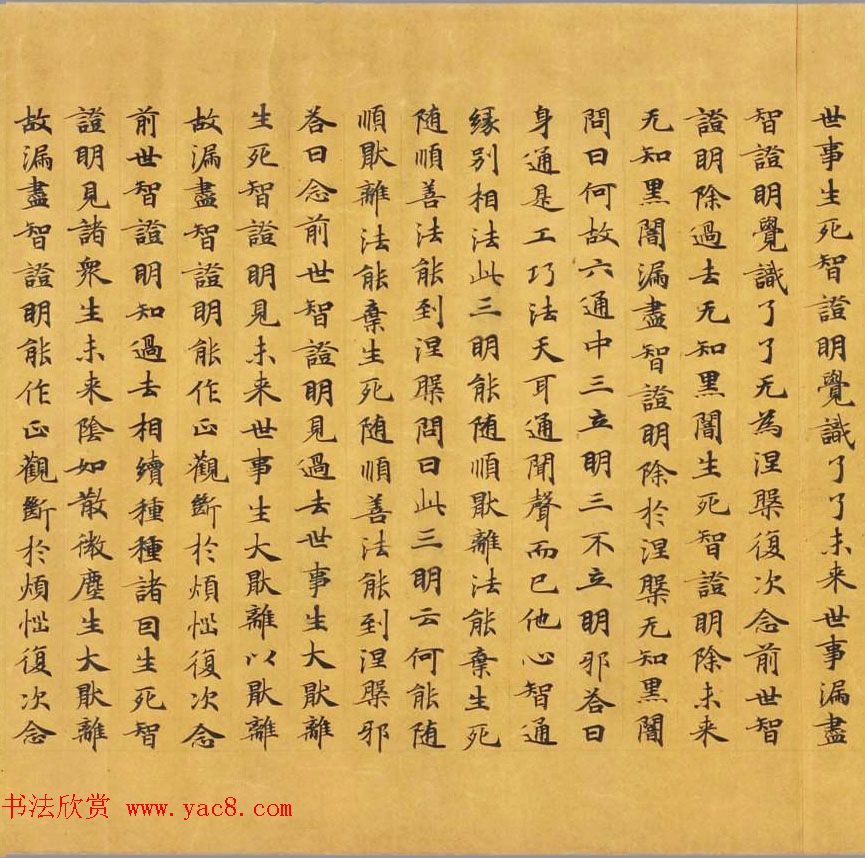 世事生死智證明覺識了了未来世事漏盡
智證明覺識了了无為涅槃復次念前世智
證明除過去无知黑闇生死智證明除未来
无知黑闇漏盡智證明除於涅槃无知黑闇
問曰何故六通中三立明三不立明邪荅曰
身通是工巧法天耳通聞聲而已他心智通
緣别相法此三明能随順猒離法能棄生死
随順善法能到涅槃問曰此三明云何能随
順猒離法能棄生死随順善法能到涅槃邪
荅曰念前世智證明見過去世事生大猒離
生死智證明見未来世事生大猒離以猒離
故漏盡智證明能作正觀斷於煩惱復次念
前世智證明知過去相續種種諸因生死智
證明見諸衆生未来陰如散微塵生大猒離
故漏盡智證明能作正觀斷於煩惱復次念
书法欣赏 www.yac8.com